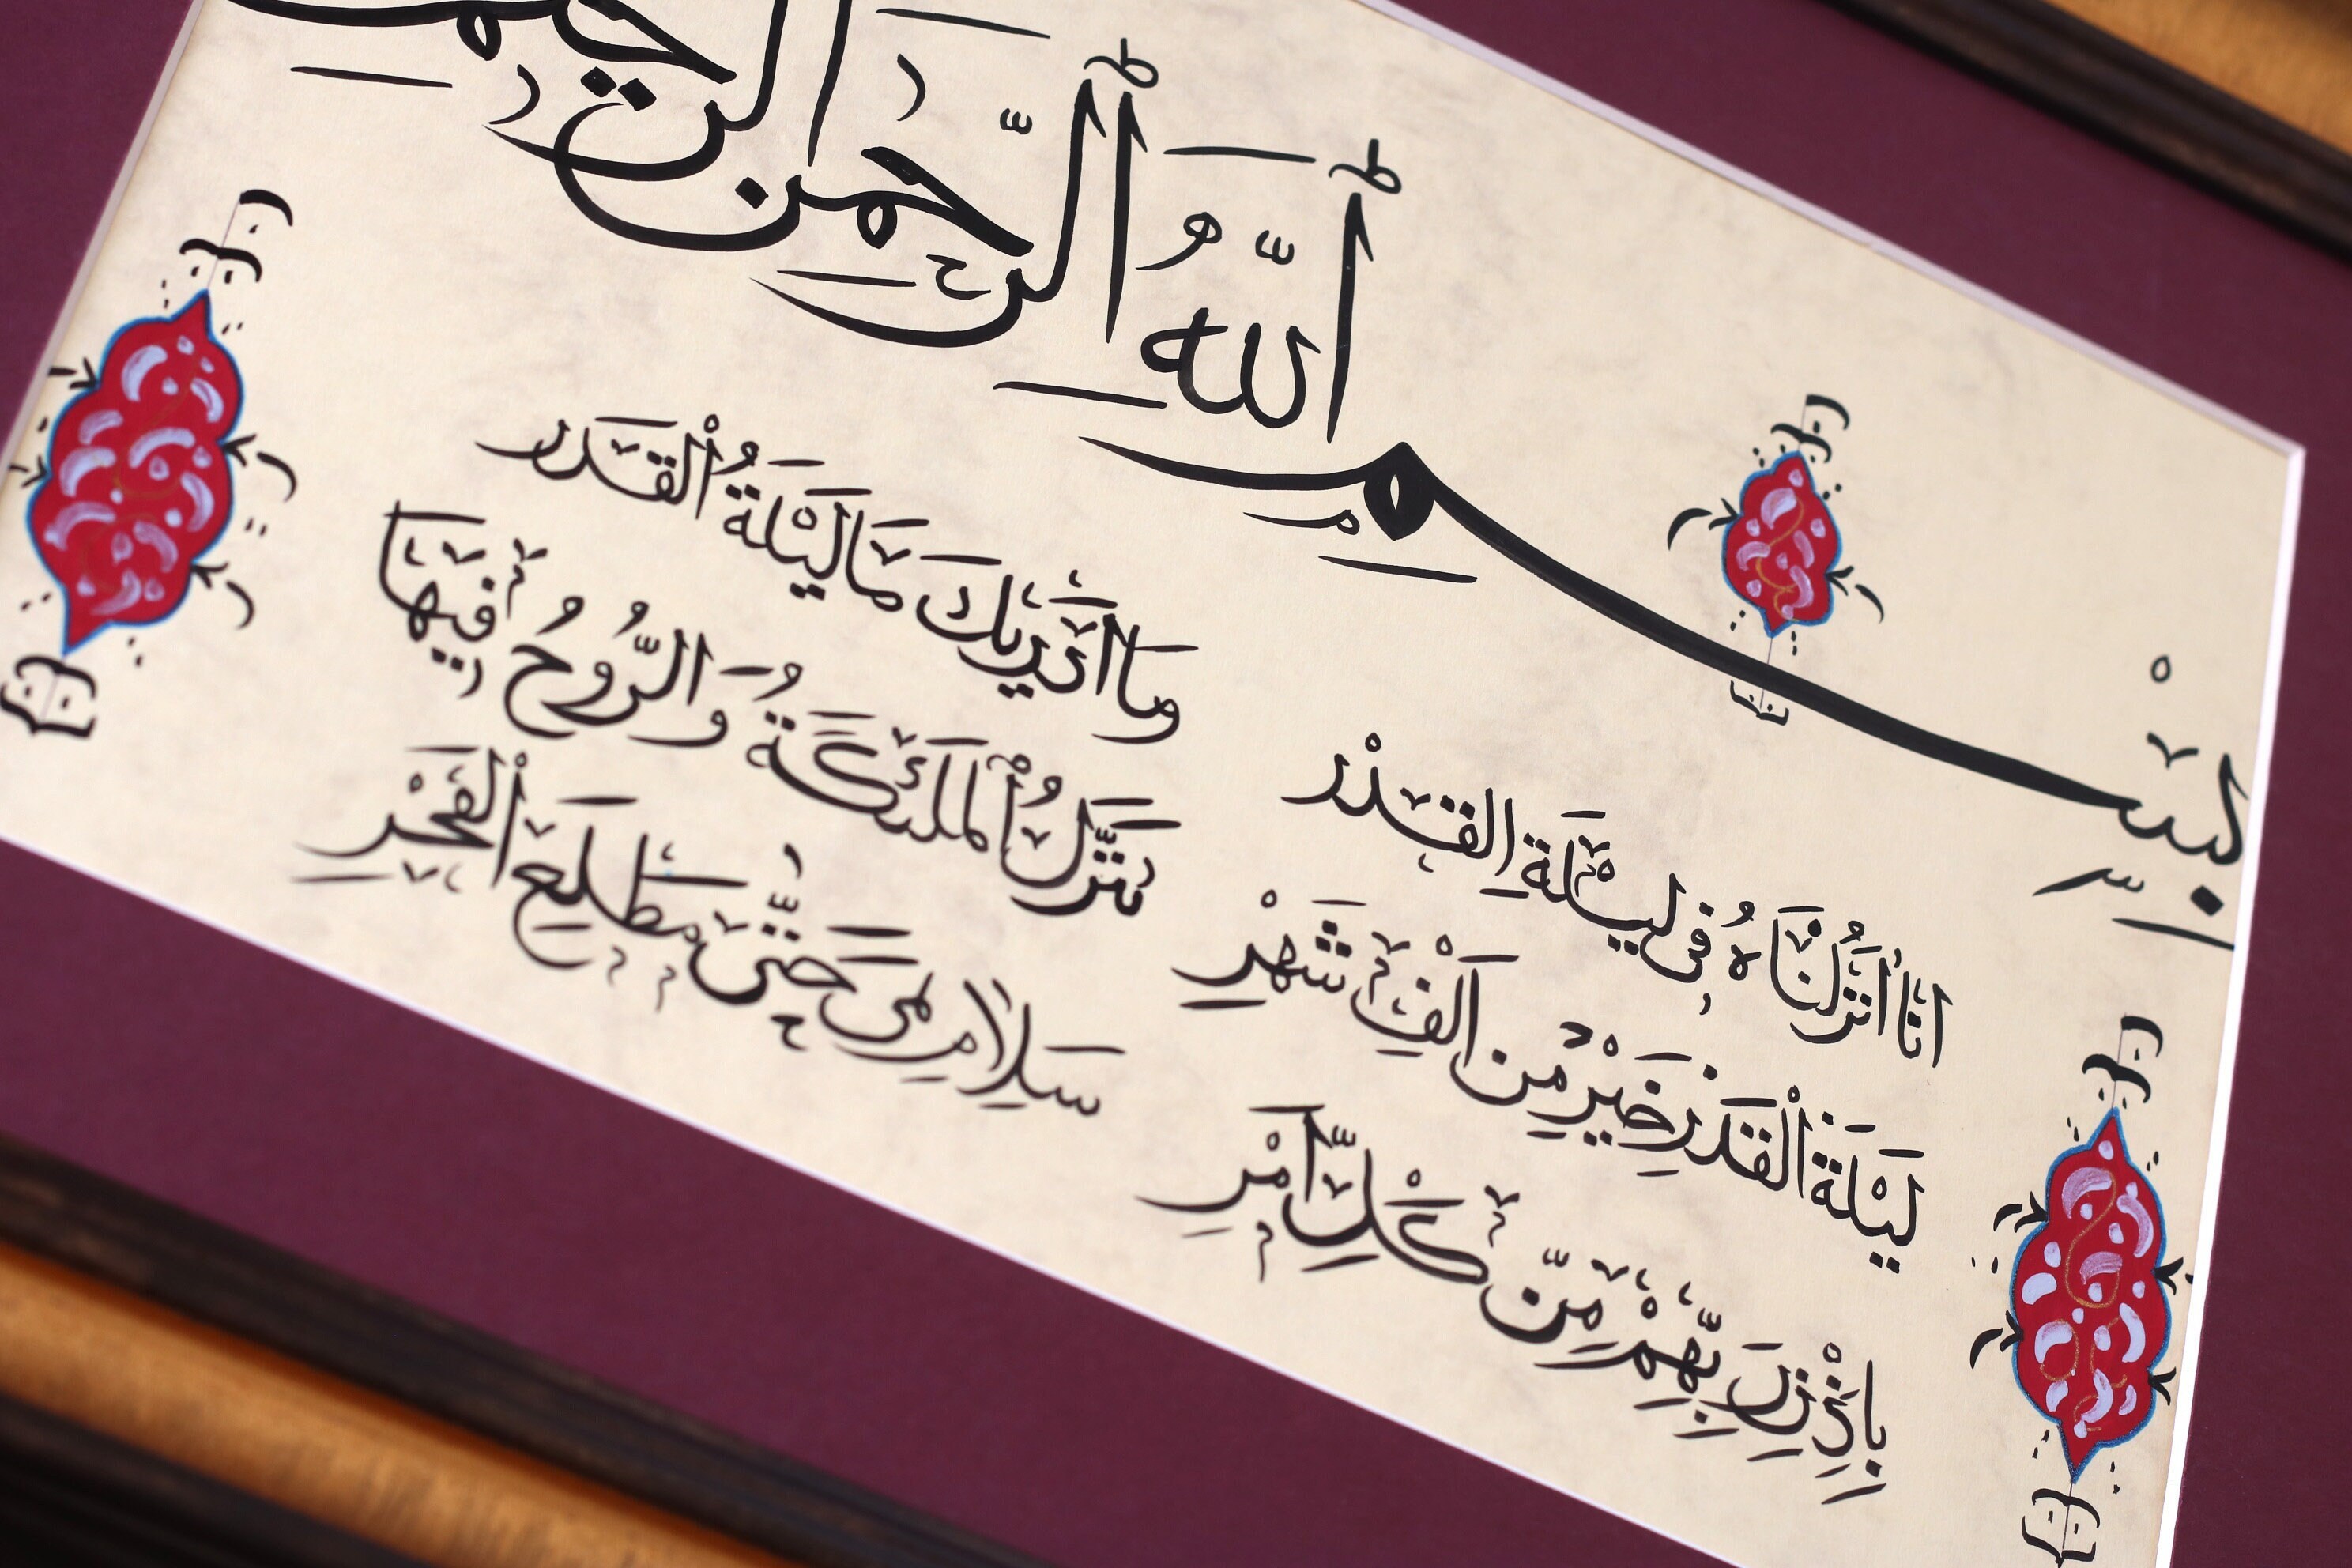 بِسْمِ اللَّهِ الرَّحْمَٰنِ الرَّحِيمِ
اِنَّا أَنْزَلْنَاهُ فِى لَيْلَةِ الْقَدْرِ
وَمَا أَدْرٰيكَ مَا لَيْلَةُ الْقَدْرِ
لَيْلَةُ الْقَدْرِ خَيْرٌ مِنْ أَلْفِ شَهْرٍ
تَنَزَّلُ الْمَلٰئِكَةُ وَالرُّوحُ فِيهَا
بِإِذْنِ رَبِّهِمْ مِنْ كُلِّ أَمْرٍ
سَلَامٌ هِىَ حَتَّى مَطْلَعِ الْفَجْرِ